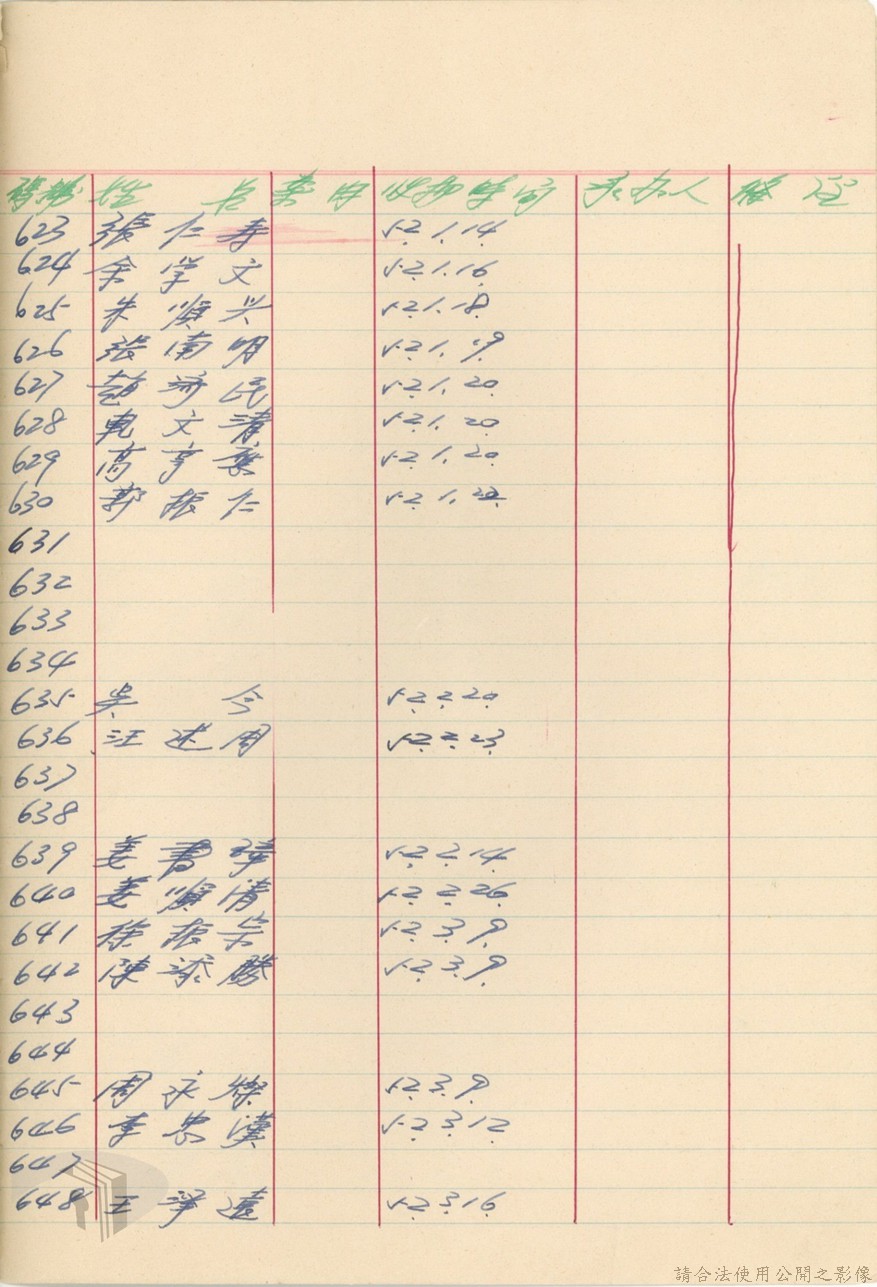 號 姓 名 案由 收押時間 承办人 備註
623 張仁寿 52.1.14
624 余学文 52.1.16
625 朱順兴 52.1.18
626 張南明 52.1.19
627 趙濟民 52.1.20
628 文清 52.1.20
629 高亨 52.1.20
630 郭振仁 52.1.22
631
632
633
634
635 吳 今 52.2.20
636 汪述周 52.2.23
637
638
639 姜書 52.2.14
640 姜順清 52.2.26
641 徐振宗 52.3.9
642 陳添勝 52.3.9
643
644
645 周永燦 52.3.9
646 李忠漢 52.3.12
647
648 王淨遠 52.3.16
請合法使用公開之影像